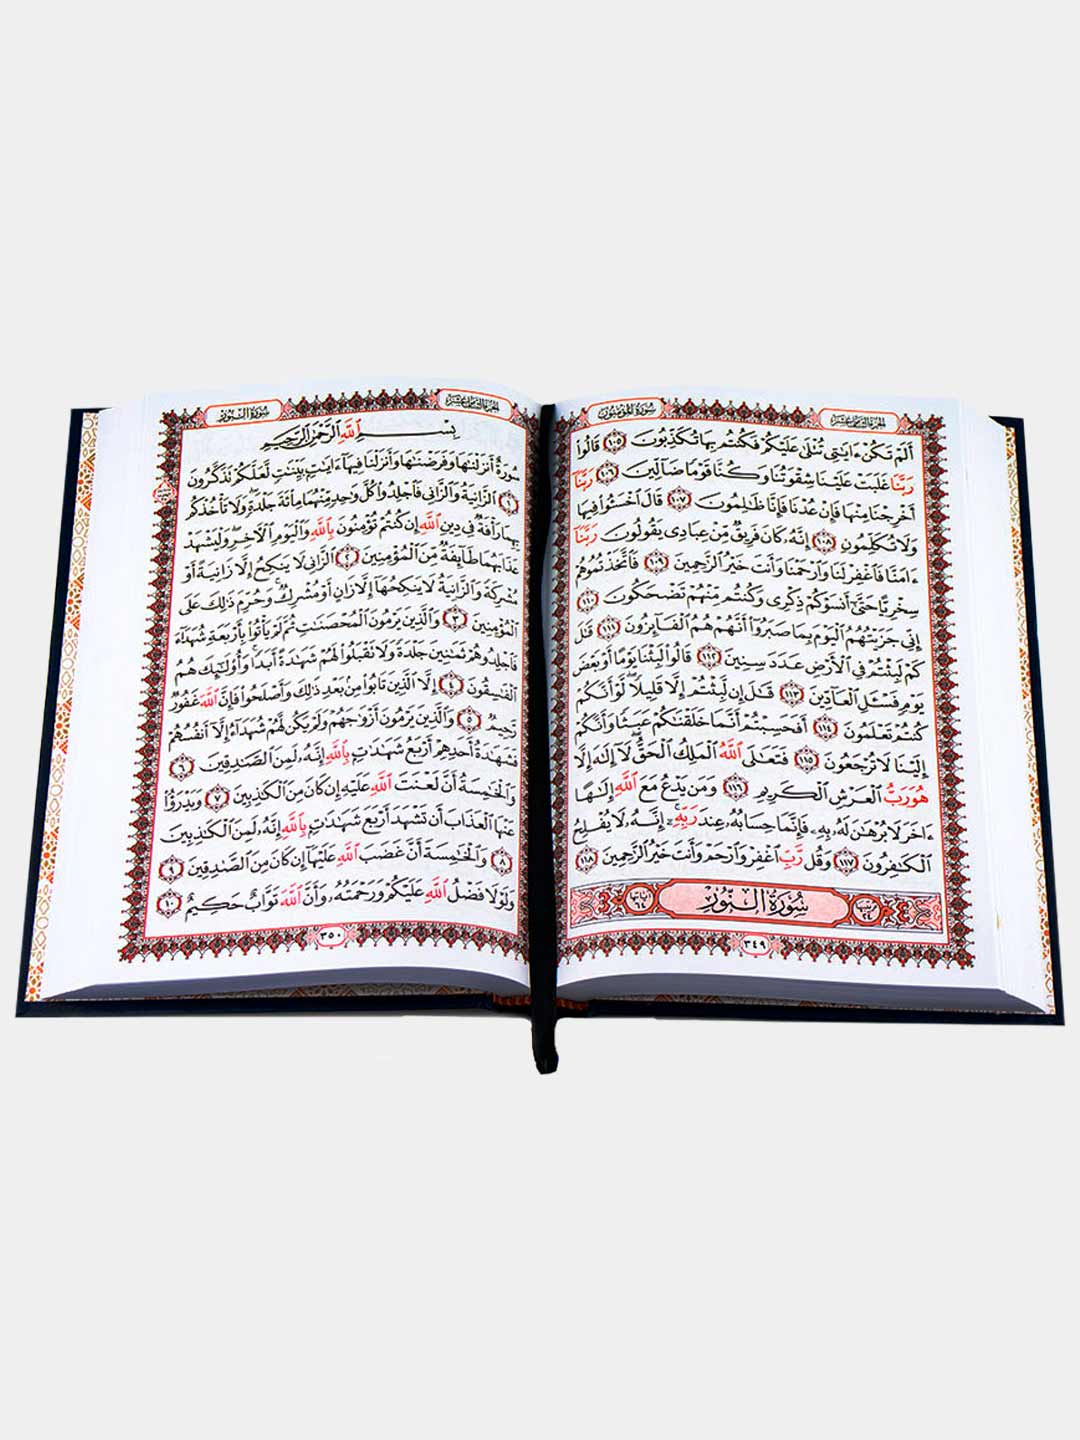 الجزء الثامن عشر
سورة المؤمنون
أَلَمْ تَكُنْ ءَايَٰتِى تُتْلَىٰ عَلَيْكُمْ فَكُنتُم بِهَا تُكَذِّبُونَ ١٠٥ قَالُوا۟
رَبَّنَا غَلَبَتْ عَلَيْنَا شِقْوَتُنَا وَكُنَّا قَوْمًا ضَآلِّينَ ١٠٦ رَبَّنَآ
أَخْرِجْنَا مِنْهَا فَإِنْ عُدْنَا فَإِنَّا ظَٰلِمُونَ ١٠٧ قَالَ ٱخْسَـُٔوا۟ فِيهَا
وَلَا تُكَلِّمُونِ ١٠٨ إِنَّهُۥ كَانَ فَرِيقٌ مِّنْ عِبَادِى يَقُولُونَ رَبَّنَآ
ءَامَنَّا فَٱغْفِرْ لَنَا وَٱرْحَمْنَا وَأَنتَ خَيْرُ ٱلرَّٰحِمِينَ ١٠٩ فَٱتَّخَذْتُمُوهُمْ
سِخْرِيًّا حَتَّىٰٓ أَنسَوْكُمْ ذِكْرِى وَكُنتُم مِّنْهُمْ تَضْحَكُونَ ١١٠
إِنِّى جَزَيْتُهُمُ ٱلْيَوْمَ بِمَا صَبَرُوٓا۟ أَنَّهُمْ هُمُ ٱلْفَآئِزُونَ ١١١ قَٰلَ
كَمْ لَبِثْتُمْ فِى ٱلْأَرْضِ عَدَدَ سِنِينَ ١١٢ قَالُوا۟ لَبِثْنَا يَوْمًا أَوْ بَعْضَ
يَوْمٍ فَسْـَٔلِ ٱلْعَآدِّينَ ١١٣ قَٰلَ إِن لَّبِثْتُمْ إِلَّا قَلِيلًا لَّوْ أَنَّكُمْ
كُنتُمْ تَعْلَمُونَ ١١٤ أَفَحَسِبْتُمْ أَنَّمَا خَلَقْنَٰكُمْ عَبَثًا وَأَنَّكُمْ
إِلَيْنَا لَا تُرْجَعُونَ ١١٥ فَتَعَٰلَى ٱللَّهُ ٱلْمَلِكُ ٱلْحَقُّ لَآ إِلَٰهَ إِلَّا
هُوَ رَبُّ ٱلْعَرْشِ ٱلْكَرِيمِ ١١٦ وَمَن يَدْعُ مَعَ ٱللَّهِ إِلَٰهًا
ءَاخَرَ لَا بُرْهَٰنَ لَهُۥ بِهِۦ فَإِنَّمَا حِسَابُهُۥ عِندَ رَبِّهِۦٓ إِنَّهُۥ لَا يُفْلِحُ
ٱلْكَٰفِرُونَ ١١٧ وَقُل رَّبِّ ٱغْفِرْ وَٱرْحَمْ وَأَنتَ خَيْرُ ٱلرَّٰحِمِينَ ١١٨
سُورَةُ النُّورِ
آياتها ٦٤
٣٤٩
الجزء الثامن عشر
سورة النور
بِسْمِ ٱللَّهِ ٱلرَّحْمَٰنِ ٱلرَّحِيمِ
سُورَةٌ أَنزَلْنَٰهَا وَفَرَضْنَٰهَا وَأَنزَلْنَا فِيهَآ ءَايَٰتٍۭ بَيِّنَٰتٍ لَّعَلَّكُمْ تَذَكَّرُونَ
١ ٱلزَّانِيَةُ وَٱلزَّانِى فَٱجْلِدُوا۟ كُلَّ وَٰحِدٍ مِّنْهُمَا مِا۟ئَةَ جَلْدَةٍ وَلَا تَأْخُذْكُم
بِهِمَا رَأْفَةٌ فِى دِينِ ٱللَّهِ إِن كُنتُمْ تُؤْمِنُونَ بِٱللَّهِ وَٱلْيَوْمِ ٱلْءَاخِرِ وَلْيَشْهَدْ
عَذَابَهُمَا طَآئِفَةٌ مِّنَ ٱلْمُؤْمِنِينَ ٢ ٱلزَّانِى لَا يَنكِحُ إِلَّا زَانِيَةً أَوْ
مُشْرِكَةً وَٱلزَّانِيَةُ لَا يَنكِحُهَآ إِلَّا زَانٍ أَوْ مُشْرِكٌ وَحُرِّمَ ذَٰلِكَ عَلَى
ٱلْمُؤْمِنِينَ ٣ وَٱلَّذِينَ يَرْمُونَ ٱلْمُحْصَنَٰتِ ثُمَّ لَمْ يَأْتُوا۟ بِأَرْبَعَةِ شُهَدَآءَ
فَٱجْلِدُوهُمْ ثَمَٰنِينَ جَلْدَةً وَلَا تَقْبَلُوا۟ لَهُمْ شَهَٰدَةً أَبَدًا وَأُو۟لَٰٓئِكَ هُمُ
ٱلْفَٰسِقُونَ ٤ إِلَّا ٱلَّذِينَ تَابُوا۟ مِنۢ بَعْدِ ذَٰلِكَ وَأَصْلَحُوا۟ فَإِنَّ ٱللَّهَ غَفُورٌ
رَّحِيمٌ ٥ وَٱلَّذِينَ يَرْمُونَ أَزْوَٰجَهُمْ وَلَمْ يَكُن لَّهُمْ شُهَدَآءُ إِلَّآ أَنفُسُهُمْ
فَشَهَٰدَةُ أَحَدِهِمْ أَرْبَعُ شَهَٰدَٰتٍۭ بِٱللَّهِ إِنَّهُۥ لَمِنَ ٱلصَّٰدِقِينَ ٦
وَٱلْخَٰمِسَةُ أَنَّ لَعْنَتَ ٱللَّهِ عَلَيْهِ إِن كَانَ مِنَ ٱلْكَٰذِبِينَ ٧ وَيَدْرَؤُا۟
عَنْهَا ٱلْعَذَابَ أَن تَشْهَدَ أَرْبَعَ شَهَٰدَٰتٍۭ بِٱللَّهِ إِنَّهُۥ لَمِنَ ٱلْكَٰذِبِينَ
٨ وَٱلْخَٰمِسَةَ أَنَّ غَضَبَ ٱللَّهِ عَلَيْهَآ إِن كَانَ مِنَ ٱلصَّٰدِقِينَ ٩
وَلَوْلَا فَضْلُ ٱللَّهِ عَلَيْكُمْ وَرَحْمَتُهُۥ وَأَنَّ ٱللَّهَ تَوَّابٌ حَكِيمٌ ١٠
٣٥٠